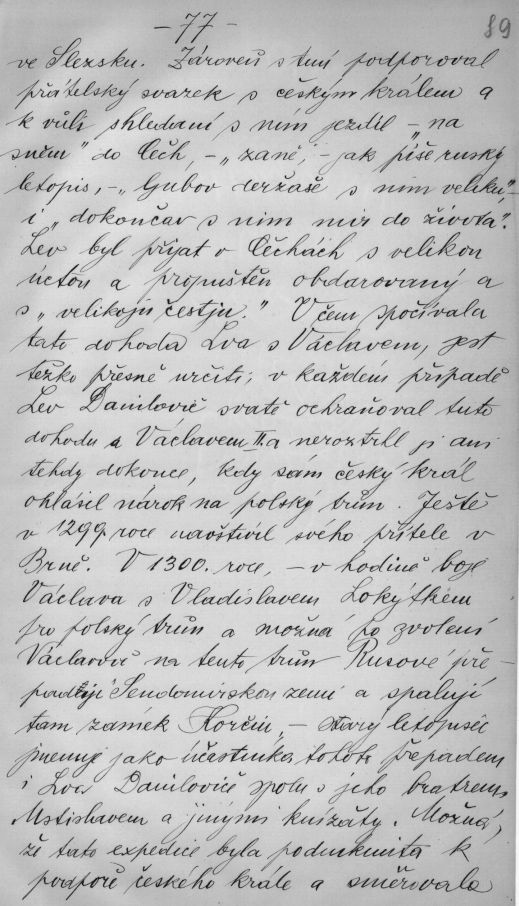 - 77 -
89
ve Slezsku. Zároveň s tím podporoval
přátelský svazek s českým králem a
k vůli shledaní s ním jezdil - „na
sněm" do Čech, - „zaně", - jak píše ruský
letopis, - „ljubov deržaše s nim veliku",
i „dokončav s nim mir do života".
Lev byl přijat v Čechách s velikou
úctou a propuštěn obdarovaný a
s „velikoju čestju." V čem spočívala
tato dohoda Lva s Václavem, jest
těžko přesně určiti; v každém případě
Lev Danilovič svatě ochraňoval tuto
dohodu s Václavem II. a neroztrhl ji ani
tehdy dokonce, kdy sám český král
ohlásil nárok na polský trůn. Ještě
v 1299. roce navštívil svého přítele v
Brně. V 1300. roce, - v hodině boje
Václava s Vladislavem Lokýtkem
pro polský trůn a možná po zvolení
Václavově na tento trůn Rusové pře-
padají Sendomirskou zemi a spalují
tam zámek Korčin, - starý letopisec
jmenuje jako účastníka tohoto přepadení
i Lva Daniloviče spolu s jeho bratrem
Mstislavem a jinými knížaty. Možná,
že tato expedice byla podniknuta k
podpoře českého krále a směřovala